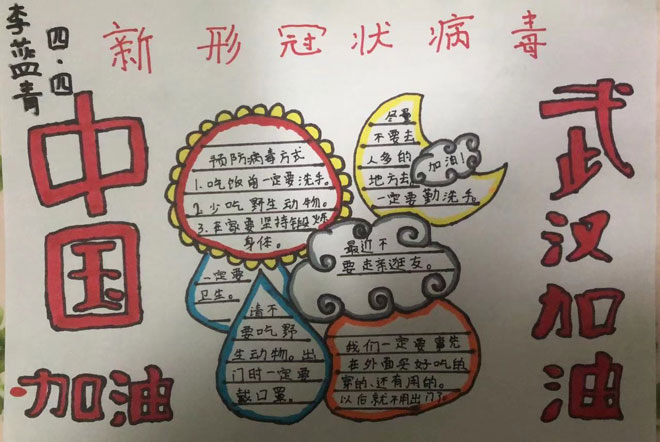 李蓝青
四.四
新形冠状病毒
中国
加油
武汉加油
预防病毒方式
1.吃饭前一定要洗手。
2.少吃野生动物。
3.在家要坚持锻炼
身体。
尽量
不要去
人多的
地方去
一定要勤洗手。
加油!
最近不
要走亲逛友。
一定要
卫生。
请不
要吃野
生动物。出
门时一定要
戴口罩。
我们一定要事先
在外面买好吃的
穿的、还有用的。
以后就不用出门了。